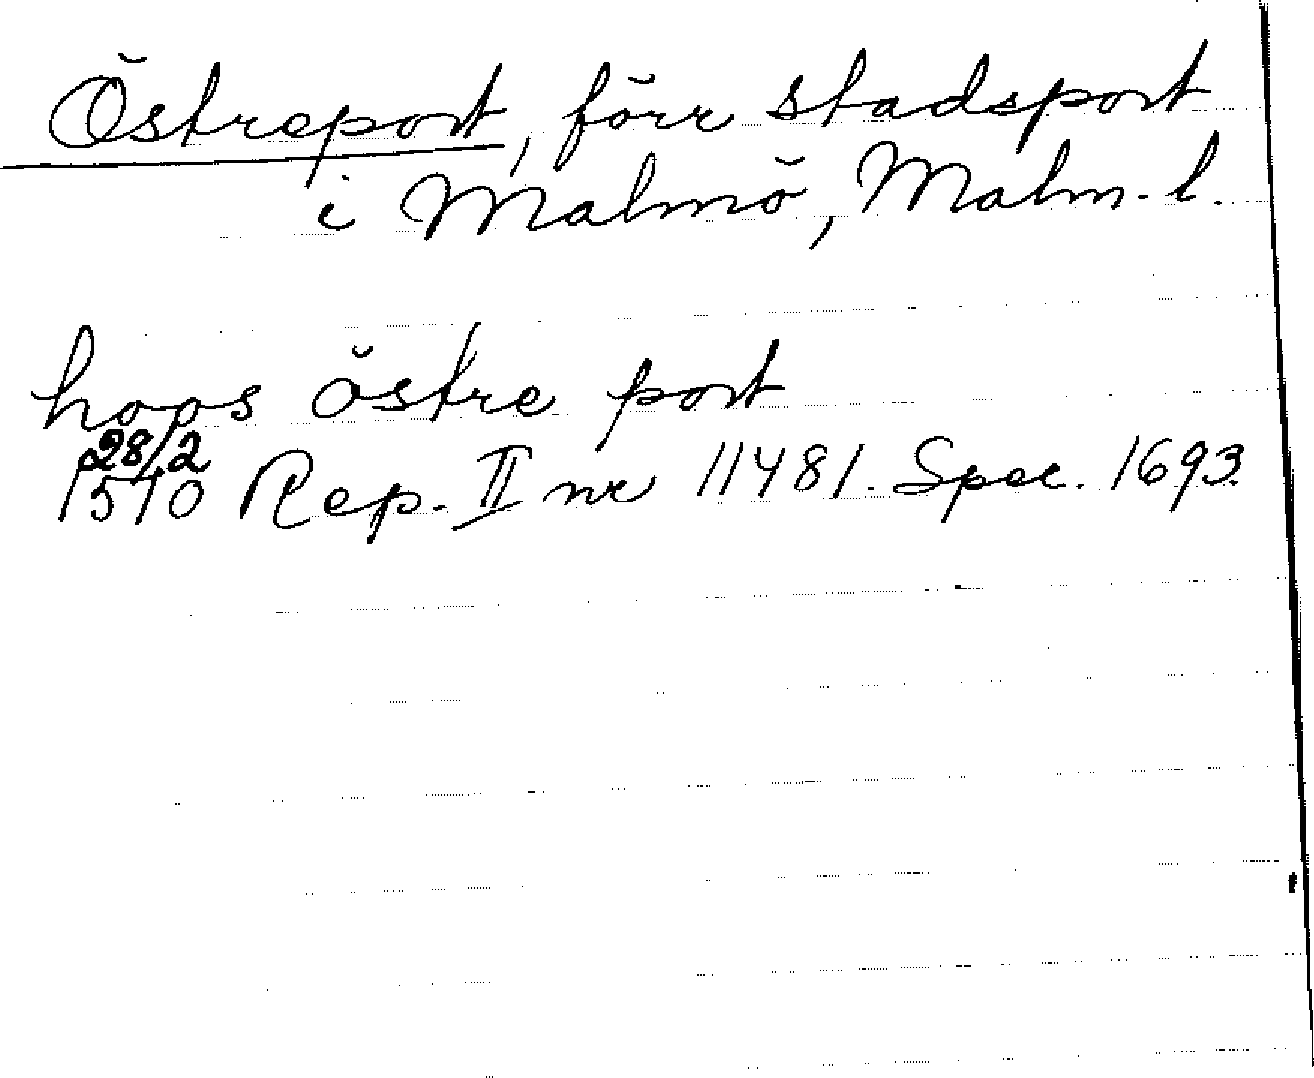 Östreport, förr stadsport
i Malmö, Malm. l.
hoos östre port
28/2
1510 Rep. II nr 11481. Spec. 1693.